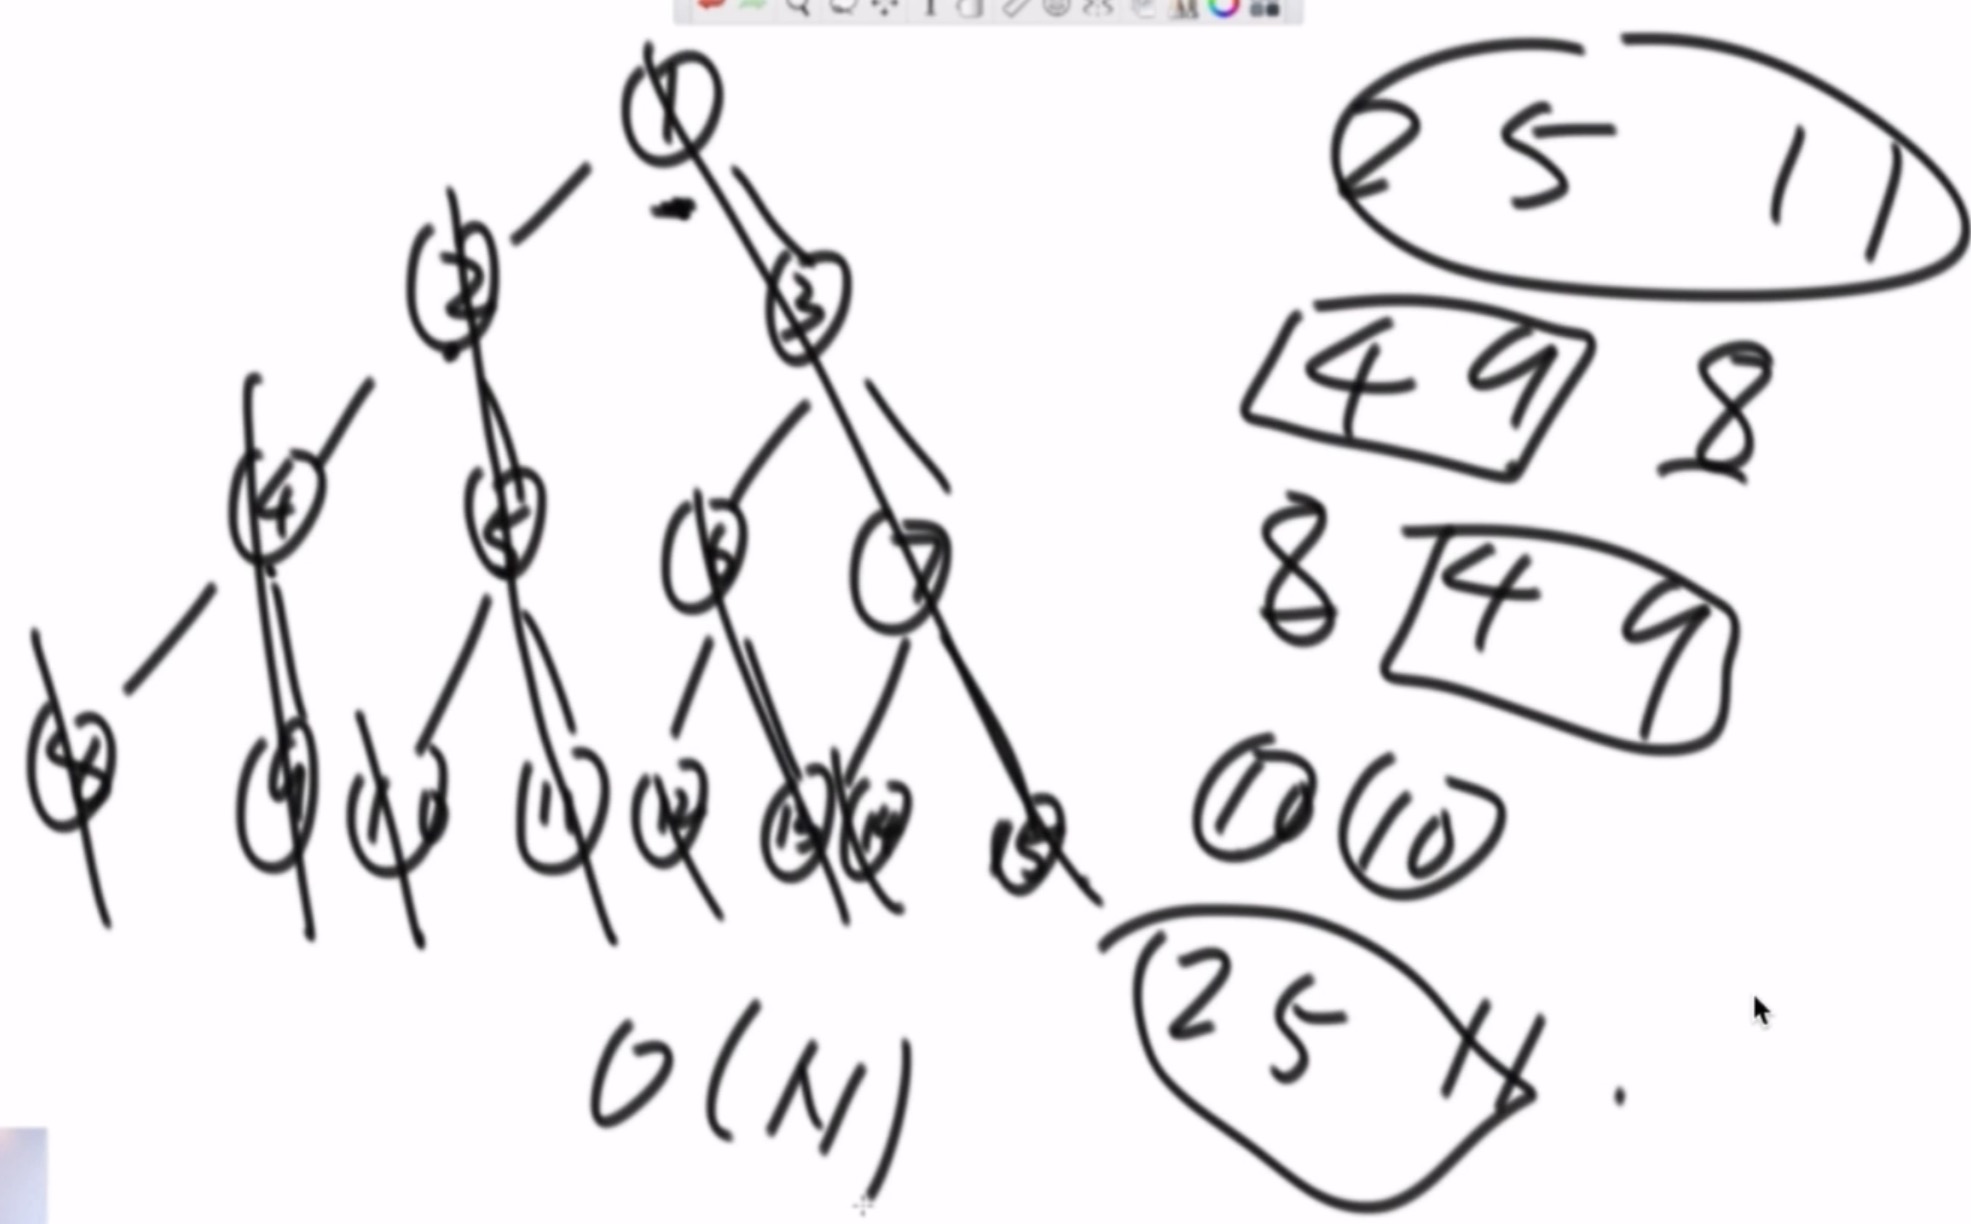 1
2 3
4 5 6 7
8 9 10 11 12 13 14 15
O(N)
2 5 11
4 9 8
8 4 9
10 10
2 5 11